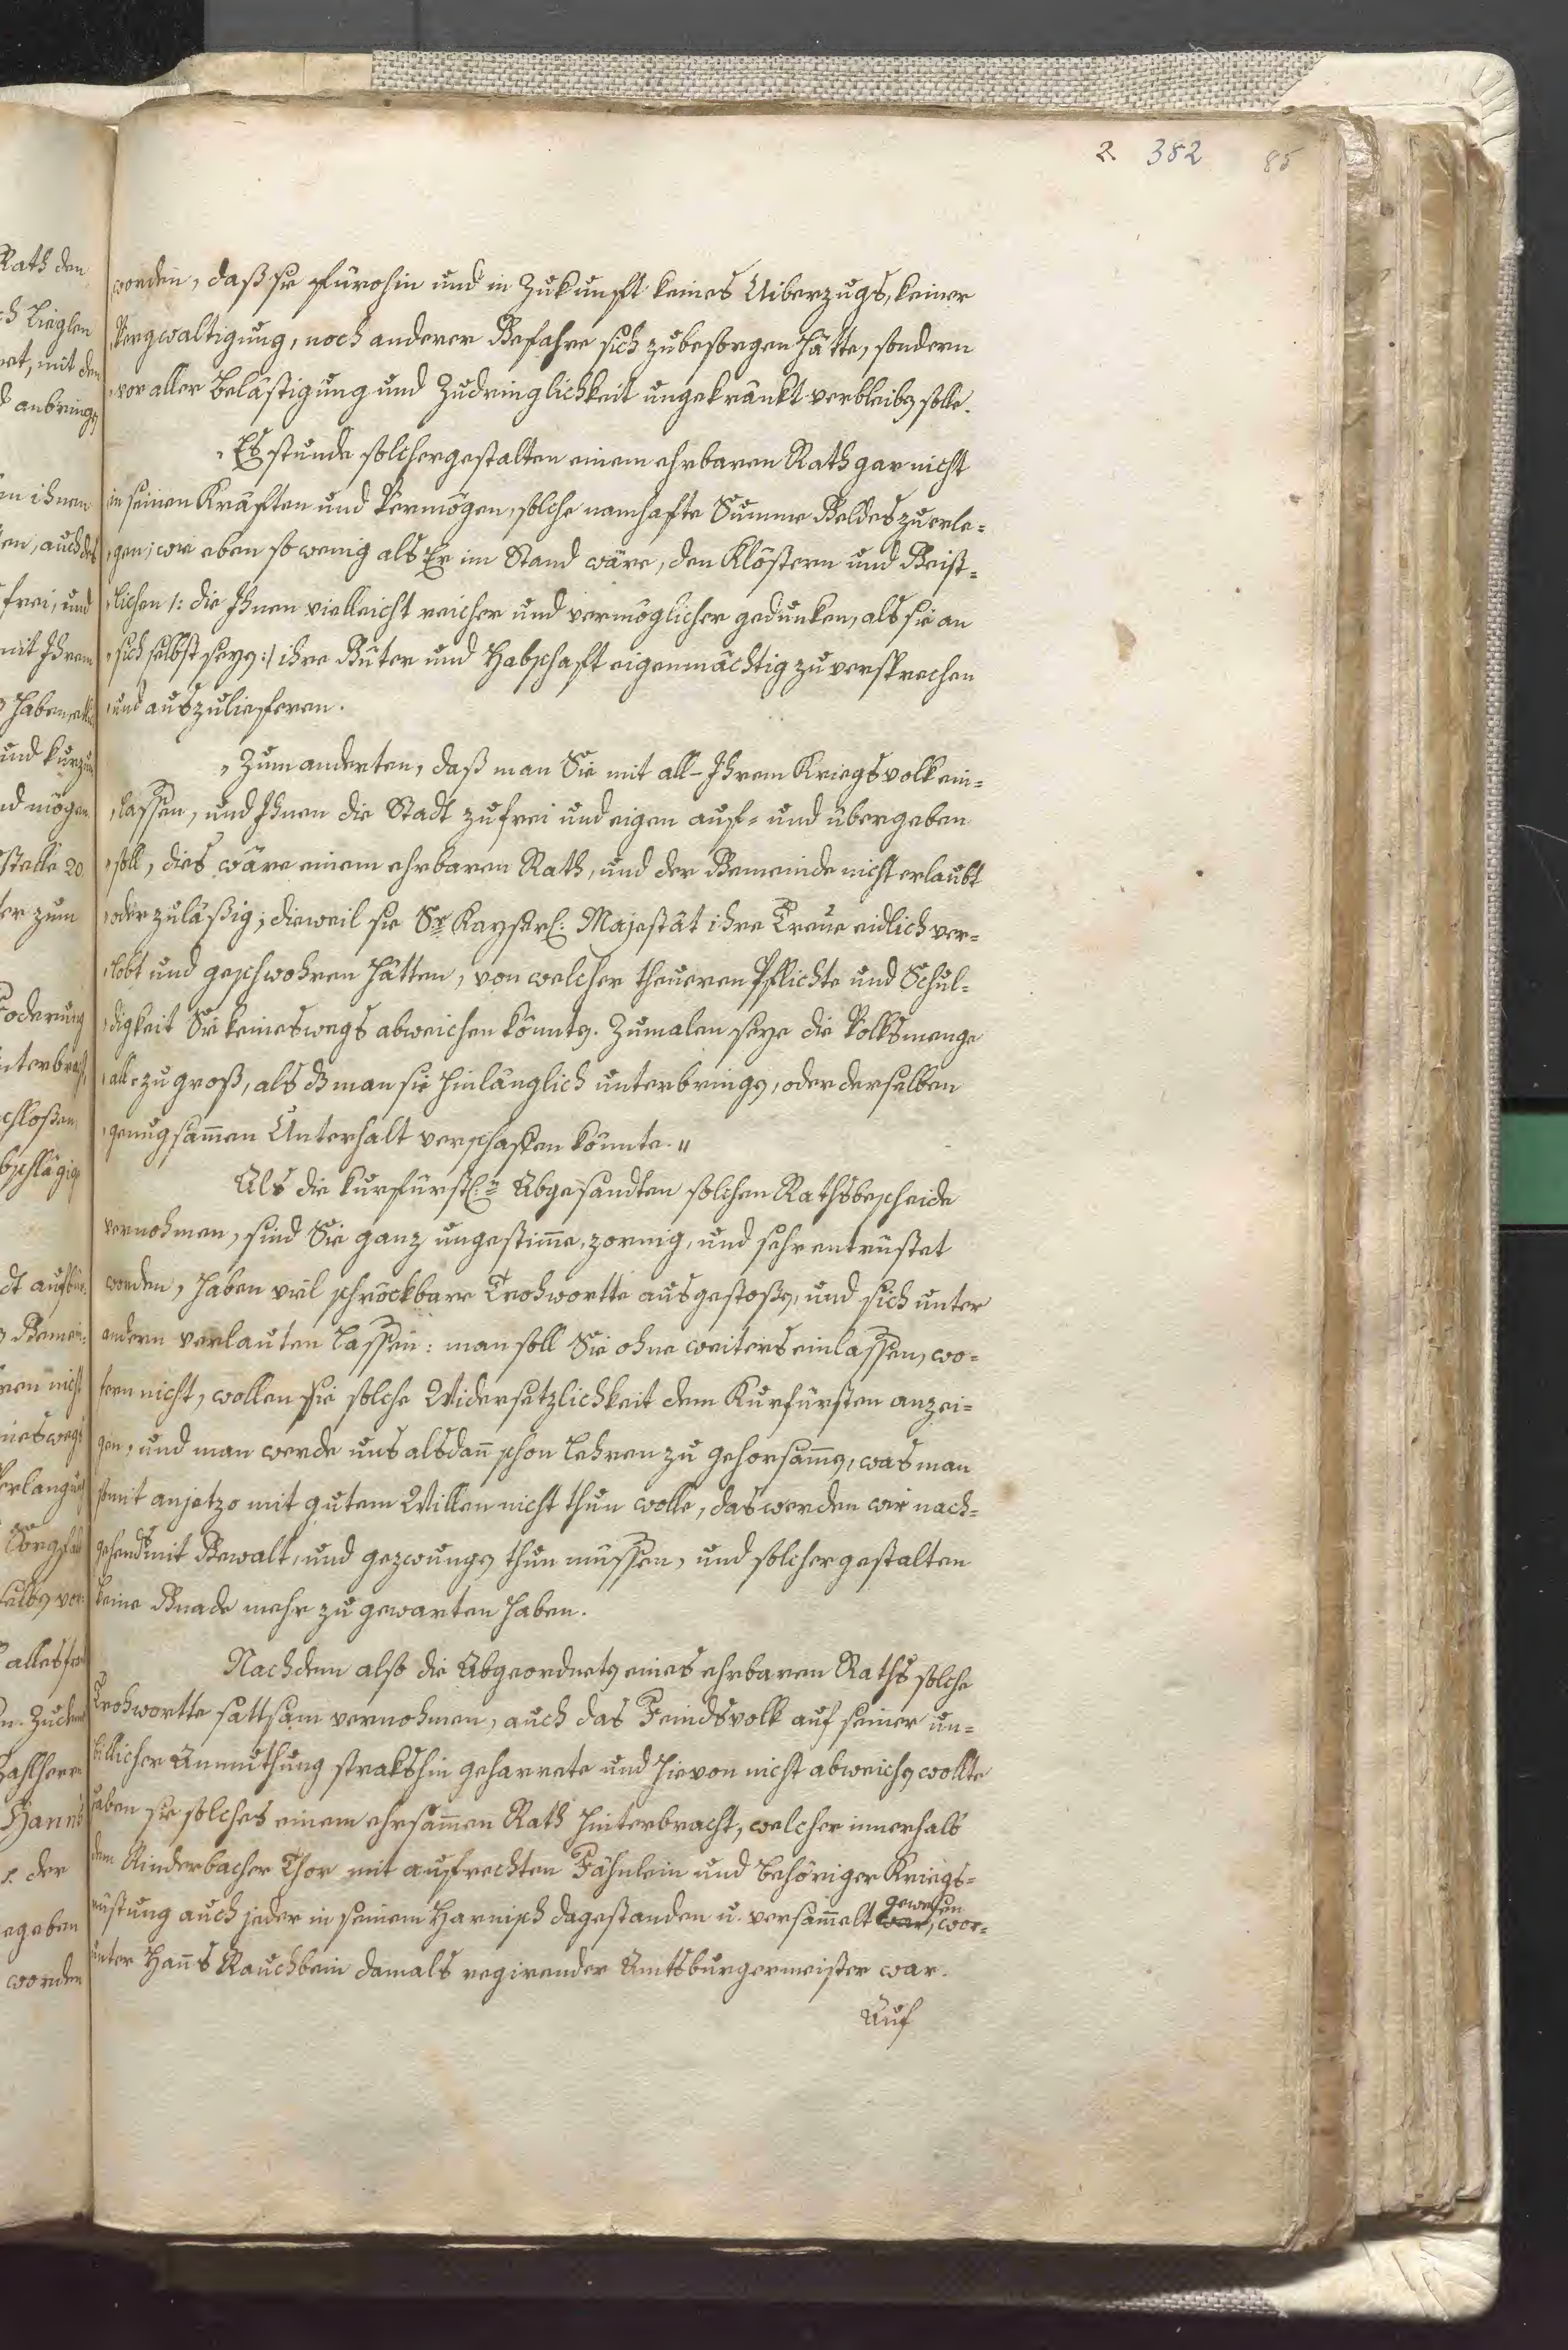 2 382 85
worden, daß sie fürohin und in Zukunft keines Uiberzugs, keiner
„Vergwaltigung, noch anderer Gefahre sich zubesorgen hätte, sondern
„vor aller Belästigung und Zudringlichkeit ungekränkt verbleiben solle.
„Es stunde solchergestalten einem ehrbaren Rath gar nicht
in seinen Kräften und Vermögen, solche namhafte Summe Geldes zu erle=
„gen; wie eben so wenig als Er im Stand wäre, den Klöstern und Geist=
„lichen /: die Ihnen vielleicht reicher und vermöglicher gedunken, als sie an
„sich selbst seyen :/ ihre Güter und Habschaft eigenmächtig zu versprechen
„und auszulieferen.
„Zum anderten, daß man Sie mit all-Ihrem Kriegsvolk ein=
„lassen, und Ihnen die Stadt zu frei und eigen auf= und übergeben
„soll, dies wäre einem ehrbaren Rath, und der Gemeinde nicht erlaubt
„oder zuläßig; dieweil sie Sr Kayserl: Majestät ihre Treue eidlich ver=
„lobt und geschwohren hätten, von welcher theueren Pflichte und Schul=
„digkeit Sie keineswegs abweichen könnten. Zumalen seye die Volksmenge
„all-zu groß, als daß man sie hinlänglich unterbringen, oder derselben
„genugsam̄en Unterhalt verschaffen könnte. "
Als die kurfürstl:n Abgesandten solchen Rathsbescheide
vernohmen, sind Sie ganz ungestim̄e, zornig, und sehr entrüstet
worden, haben viel schröckbare Trohwortte ausgestoßen, und sich unter
andern verlauten lassen: man soll Sie ohne weiters einlassen, wo=
fern nicht, wollen sie solche Widersetzlichkeit dem Kurfürsten anzei=
gen, und man werde uns alsdan̄ schon lehren zu gehorsam̄en, was man
somit anjetzo mit gutem Willen nicht thun wolle, das werden wir nach=
gehends mit Gewalt, und gezwungen thun müssen, und solchergestalten
keine Gnade mehr zu gewarten haben.
Nachdem also die Abgeordneten eines ehrbaren Raths solche
Trohwortte sattsam vernohmen, auch das Feindsvolk auf seiner un=
billicher Anmuthung strakshin geharrete und hievon nicht abweichen wollte
haben sie solches einem ehrsam̄en Rath hinterbracht, welcher innerhalb
dem Rinderbacher Thor mit aufrechten Fähnlein und behöriger Kriegs=
gewesen
rüstung auch jeder in seinem Harnisch dagestanden u. versam̄elt war, wor=
unter Han̄s Rauchbein damals regirender Amtsburgermeister war.
Auf